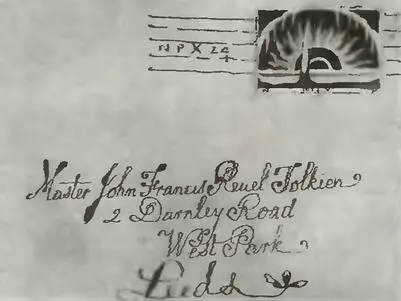 N P X 24
Master John Francis Reuel Tolkien
2 Darnley Road
West Park
Leeds